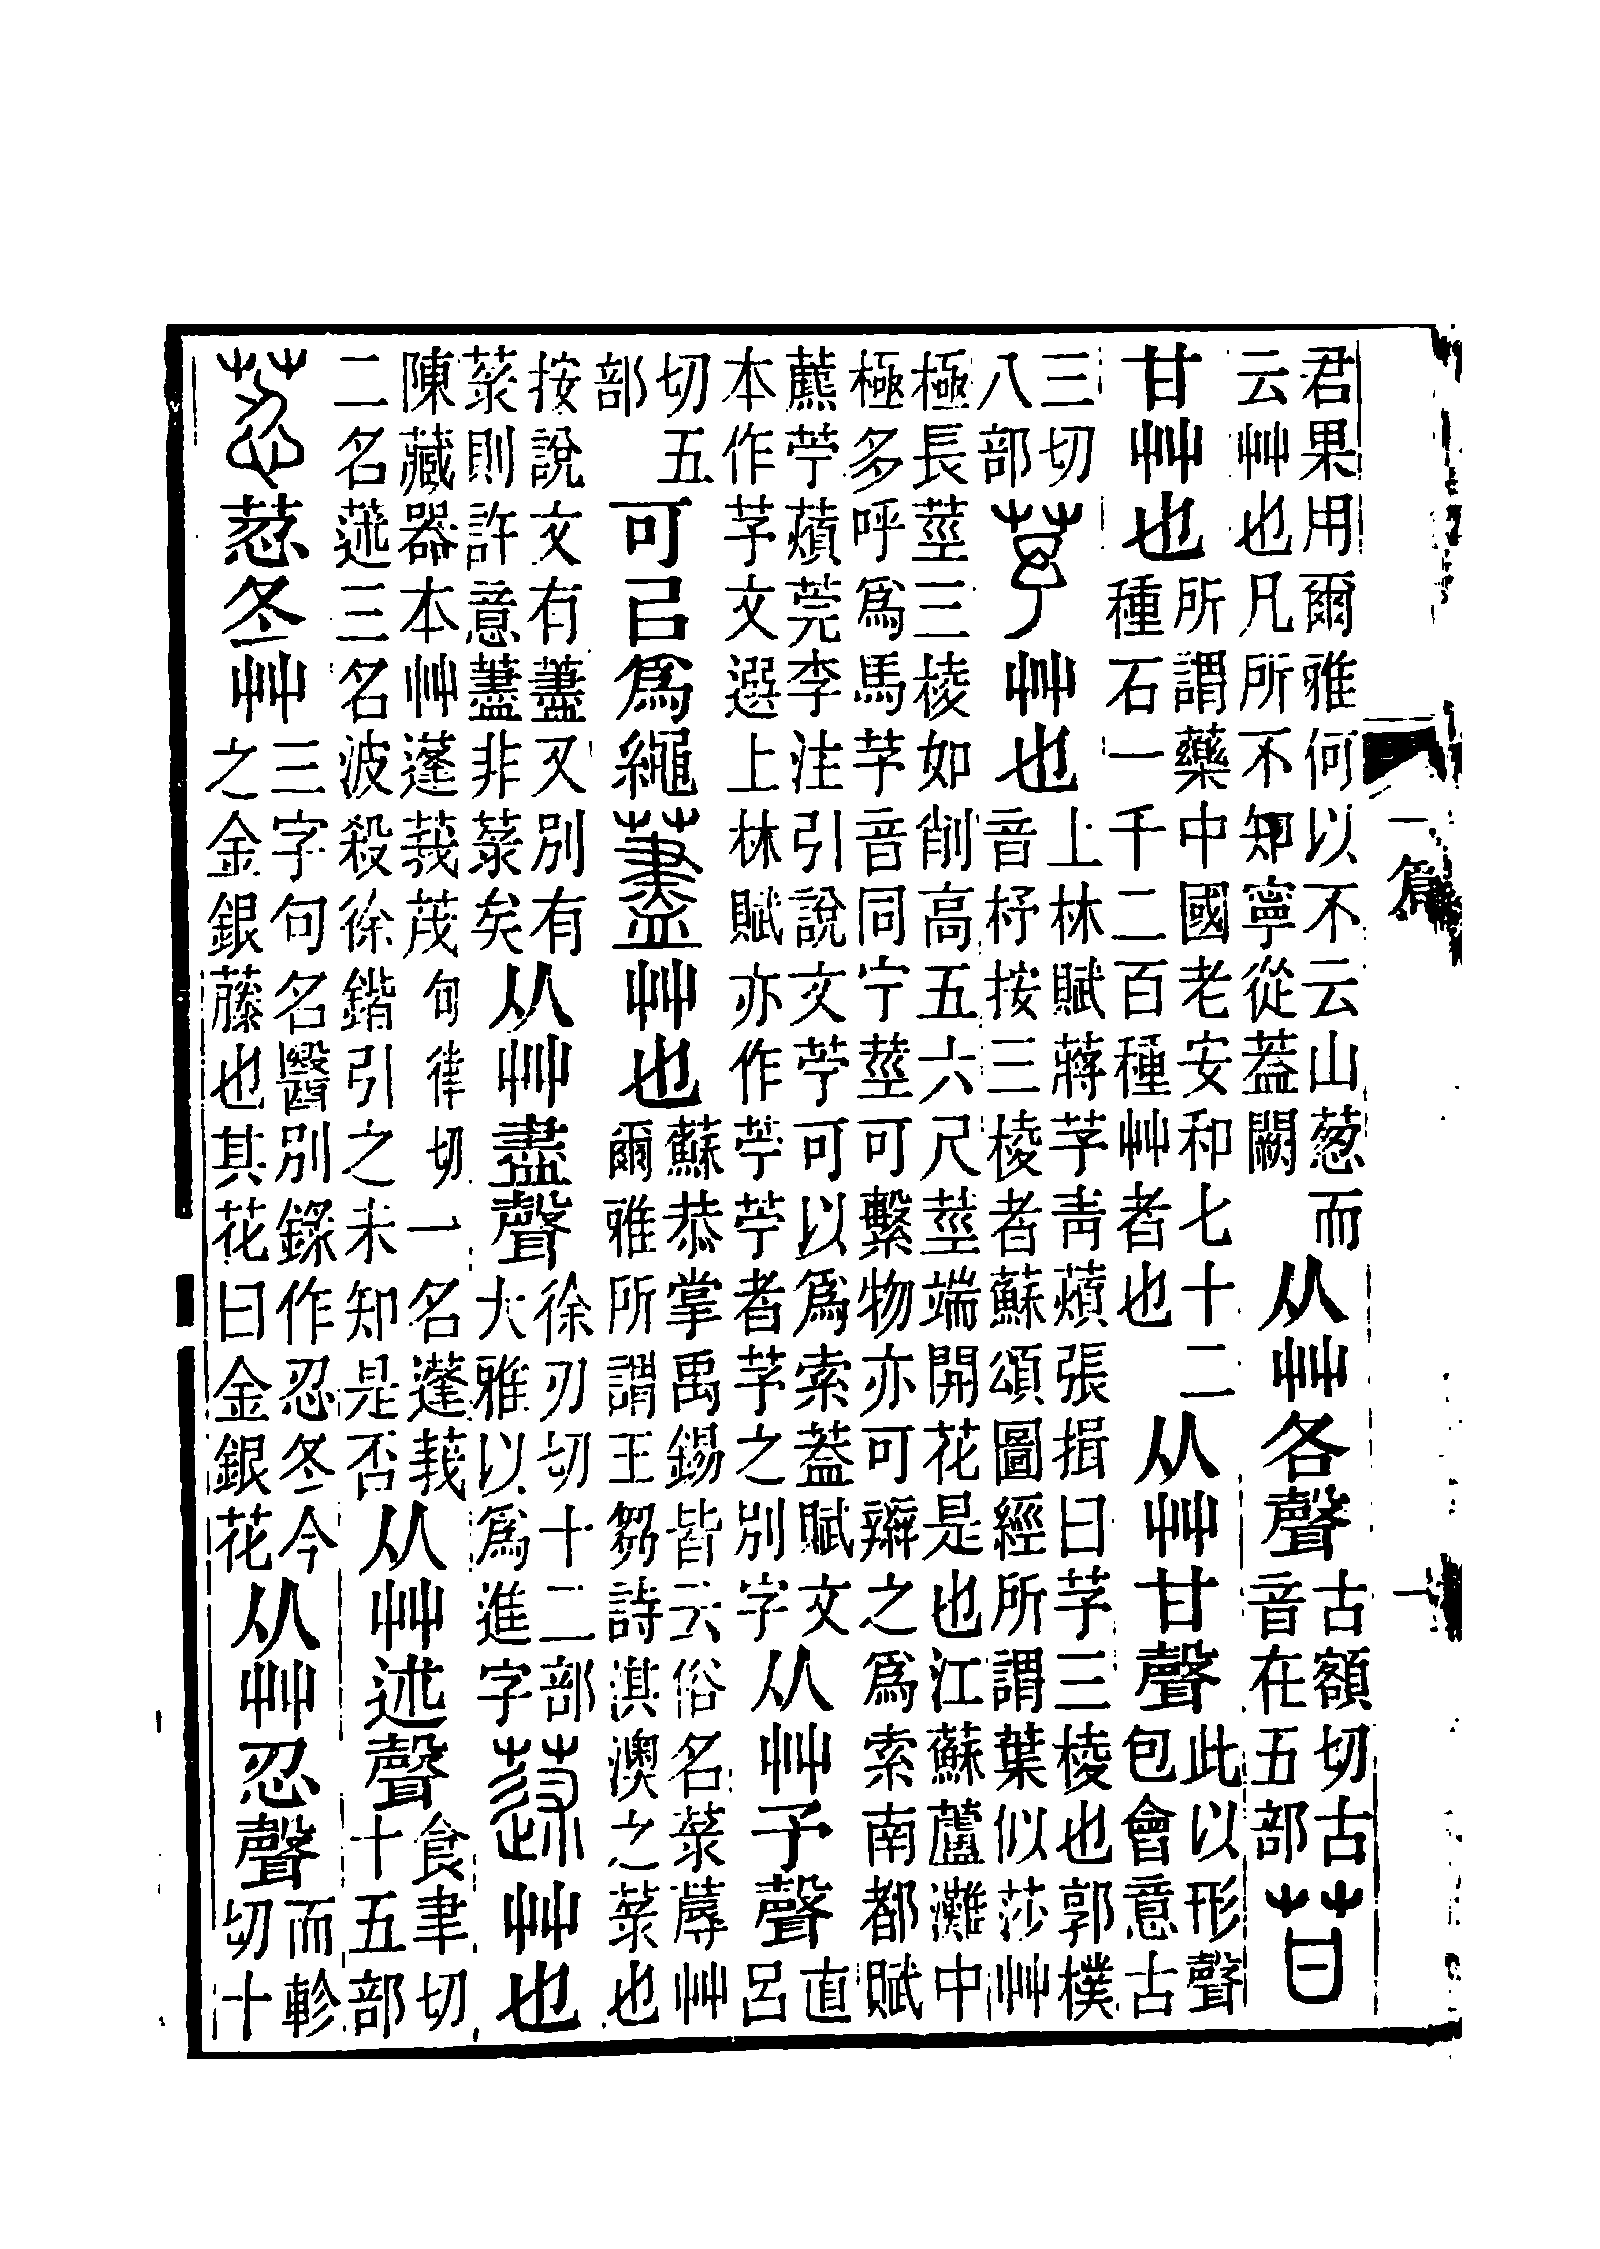 君果用爾雅何以不云山蔥而云艸也凡所不知寧從蓋闕从艸各聲古額切古音在五部苷
甘艸也所謂藥中國老安和七十二種石一千二百種艸者也从艸甘聲此以形聲包會意古
三切八部芧艸也上林賦蔣芧青薠張揖曰芧三棱也郭樸音杼按三棱者蘇頌圖經所謂葉似莎艸
極長莖三棱如削高五六尺莖端開花是也江蘇蘆灘中極多呼爲馬芧音同宁莖可繫物亦可辮之爲索南都賦
藨苧薠莞李注引說文苧可以爲索蓋賦文本作芧文選上林賦亦作苧苧者芧之別字从艸予聲直呂
切五部可㠯爲繩藎艸也蘇恭掌禹錫皆云俗名菉蓐艸爾雅所謂王芻詩淇澳之菉也
按說文有藎又別有菉則許意藎非菉矣从艸盡聲徐刃切十二部大雅以爲進字蒁艸也
陳藏器本艸蓬莪茂旬律切一名蓬莪二名蒁三名波殺徐鍇引之未知是否从艸述聲食聿切十五部
荵荵冬艸三字句名醫別錄作忍冬今之金銀藤也其花曰金銀花从艸忍聲而軫切十